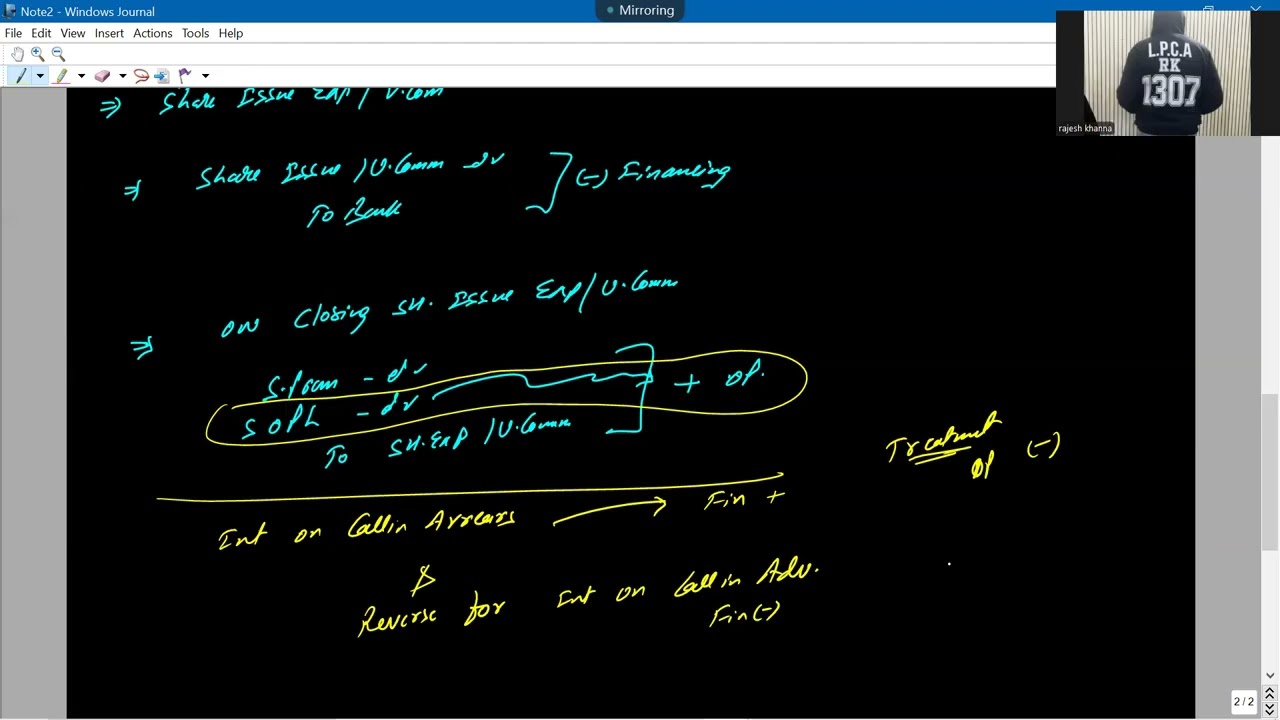 Note2 - Windows Journal
Mirroring
File Edit View Insert Actions Tools Help
L.P.C.A
RK
1307
rajesh khanna
⇒ Share Issue Exp / U.Com
⇒ Share Issue / U.Comm dr
To Bank
(-) Financing
⇒ on Closing SH. Issue Exp / U.Comm
S.Prem - dr
SOPL - dr
To SH.Exp / U.Comm
+ OP.
Treatment
OP (-)
Int on Callin Arrears → Fin +
&
Reverse for Int on Callin Adv.
Fin (-)
2 / 2